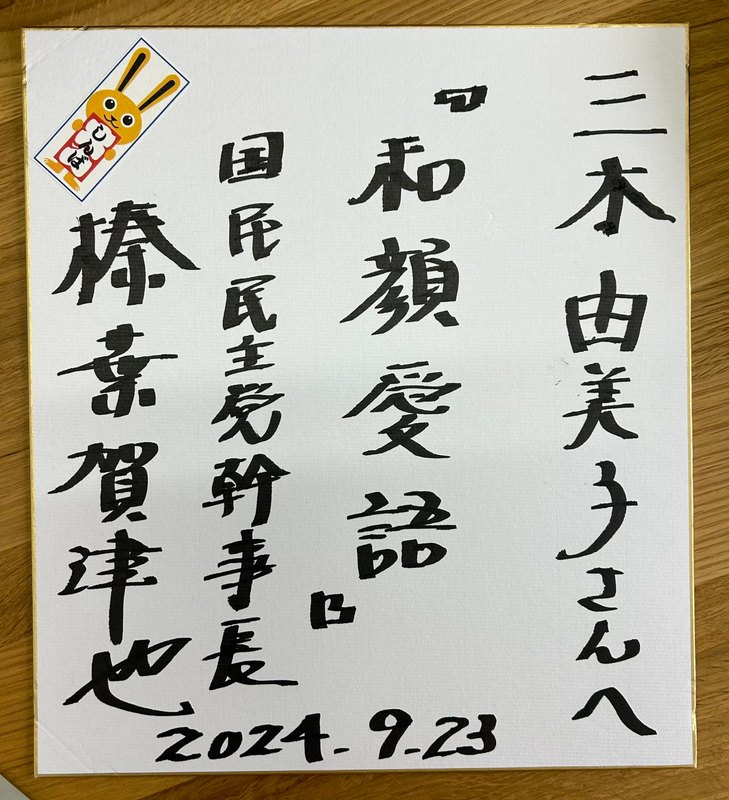 三木由美子さんへ
『和顔愛語』
国民民主党幹事長
榛葉賀津也
しんば
2024.9.23